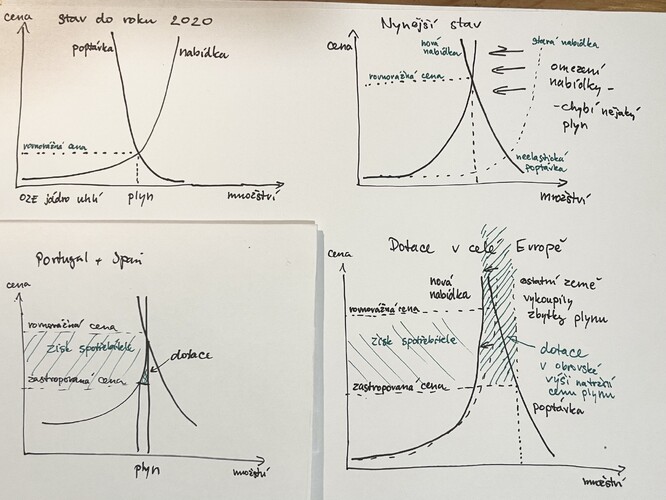 stav do roku 2020
cena
poptávka
nabídka
rovnovážná cena
OZE jádro uhlí
plyn
množství
Nynější stav
cena
nová
nabídka
stará nabídka
rovnovážná cena
omezení
nabídky -
- chybí nějaký
plyn
neelastická
poptávka
množství
Portugal + Španě
cena
rovnovážná cena
Zisk spotřebitele
dotace
zastropovaná cena
plyn
množství
Dotace v celé Evropě
cena
nová
nabídka
ostatní země
vykoupily
zbytky plynu
rovnovážná cena
Zisk spotřebitele
dotace
v obrovské
výši
cenu plynu
zastropovaná cena
poptávka
množství